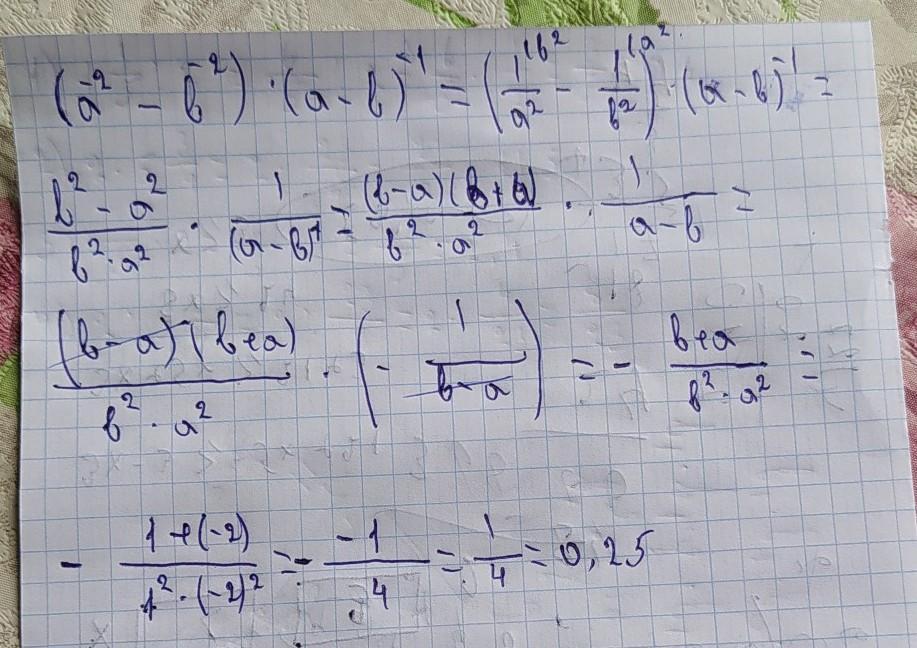 (a⁻² - b⁻²) · (a - b)⁻¹ = (1/a² ⁽b² - 1/b² ⁽a²) · (a - b)⁻¹ =
(b² - a²)/(b² · a²) · 1/(a - b)¹ = (b-a)(b+a)/(b² · a²) · 1/(a-b) =
(b-a)(b+a)/(b² · a²) · (- 1/(b-a)) = - (b+a)/(b² · a²) =
- (1+(-2))/(1² · (-2)²) = - (-1)/4 = 1/4 = 0,25